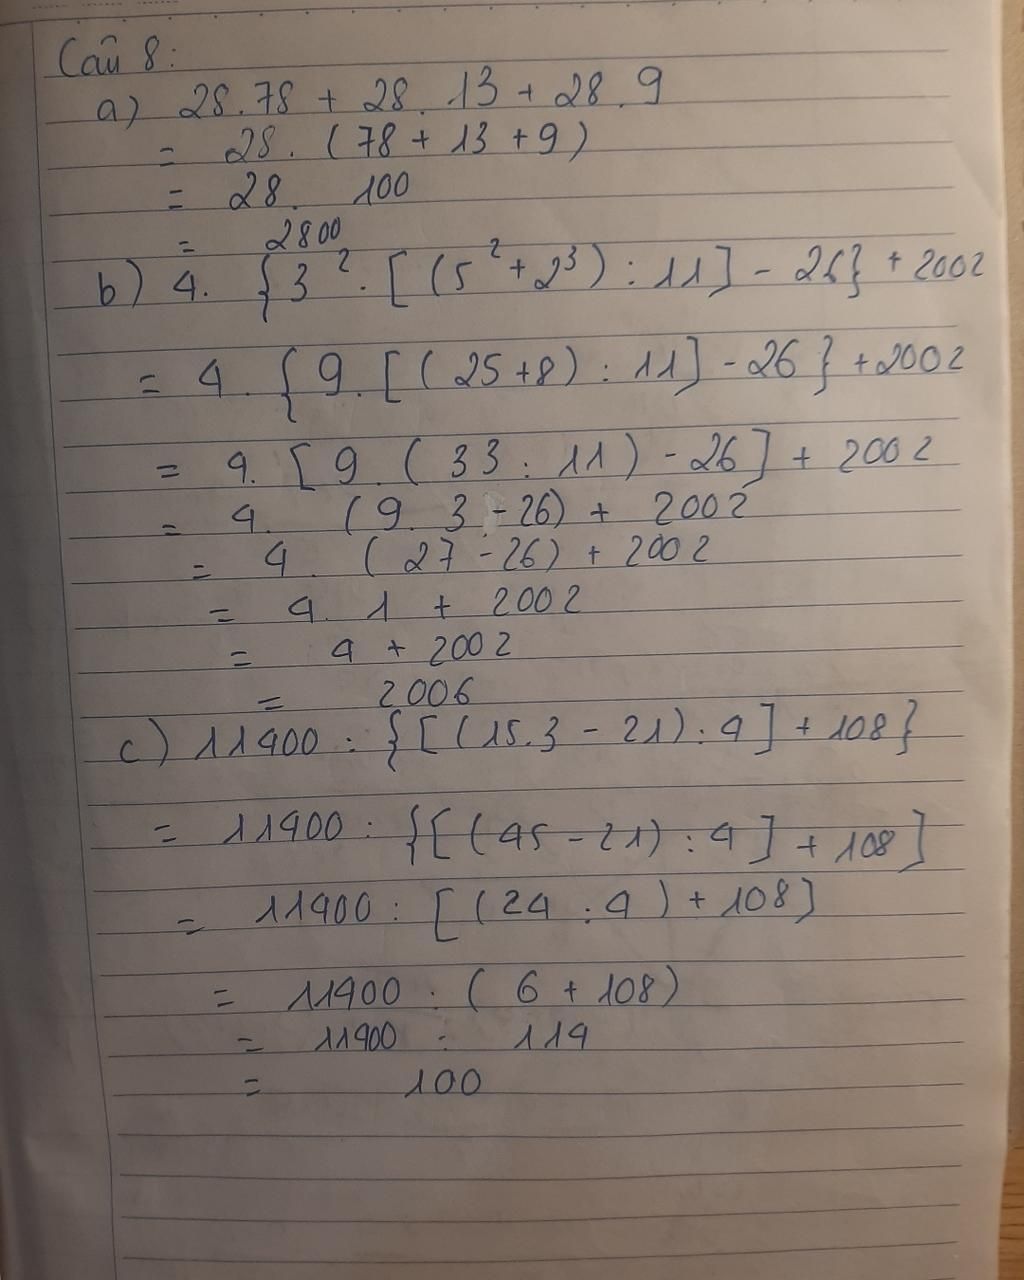 Câu 8:
a) 28.78 + 28.13 + 28.9
= 28.(78 + 13 + 9)
= 28. 100
= 2800
b) 4. {3² . [(5² + 2³) : 11] - 26} + 2002
= 4. {9. [(25+8) : 11] - 26} + 2002
= 4. [9. (33 : 11) - 26] + 2002
= 4. (9. 3 - 26) + 2002
= 4. (27 - 26) + 2002
= 4. 1 + 2002
= 4 + 2002
= 2006
c) 11400 : {[(15.3 - 21) : 4] + 108}
= 11400 : {[(45 - 21) : 4] + 108]
= 11400 : [(24 : 4) + 108]
= 11400 : (6 + 108)
= 11400 : 114
= 100